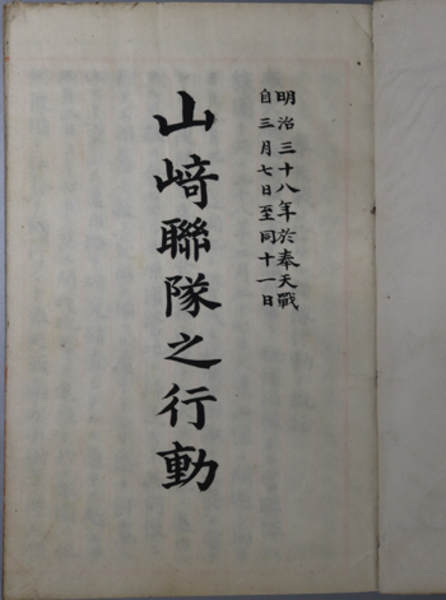 明治三十八年於奉天戰
自三月七日至同十一日
山﨑聯隊之行動